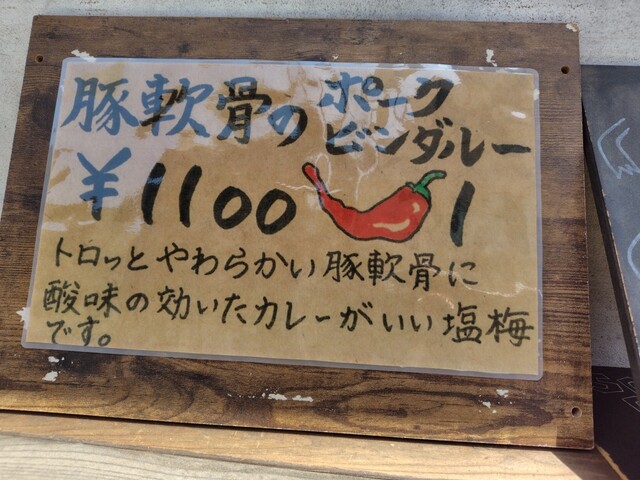 豚軟骨のポーク
ビンダルー
¥1100 1
トロッとやわらかい豚軟骨に
酸味の効いたカレーがいい塩梅
です。